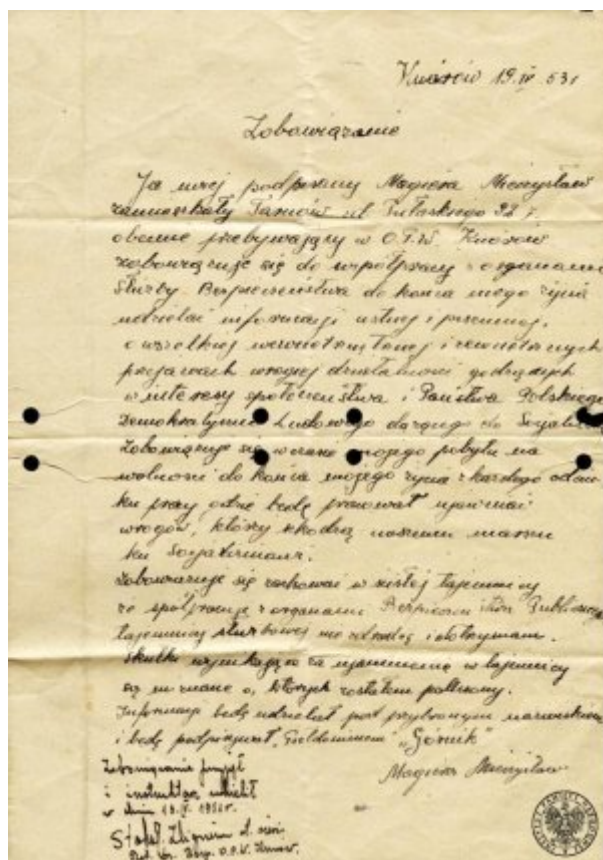 Knurów 19.IV 53r
Zobowiązanie
Ja niżej podpisany Magiera Mieczysław
zamieszkały Tarnów ul Pułaskiego 92
obecnie przebywający w O.P.W. Knurów
zobowiązuje się do współpracy z organami
Służby Bezpieczeństwa do końca mego życia
udzielać informacji ustnej i pisemnej,
o wszelkiej wewnętrznej i zewnętrznych
przejawach wrogiej działalności godzących
w interesy społeczeństwa i Państwa Polskiego
Demokratycznie Ludowego dążącego do Socjalizmu
Zobowiązuje się w czasie mojego pobytu na
wolności do końca mojego życia z każdego
przy gdzie będę pracował ujawniać
wrogów, którzy szkodzą naszemu marszu
ku Socjalizmowi.
Zobowiązuje się zachować w ścisłej tajemnicy
że spółpracuję z organami Bezpieczeństwa Publicznego
tajemnicy służbowej nie zdradzę i dotrzymam.
Skutki wynikające za w tajemnicy
są mi znane o, których zostałem pouczony.
Informacje będę udzielał pod przybranym nazwiskiem
i będę podpisywał, "Górnik"
Magiera Mieczysław
Zobowiązanie przyjął
i instruktaż udzielił
w dniu
Zbigniew
O.P.W. Knurów